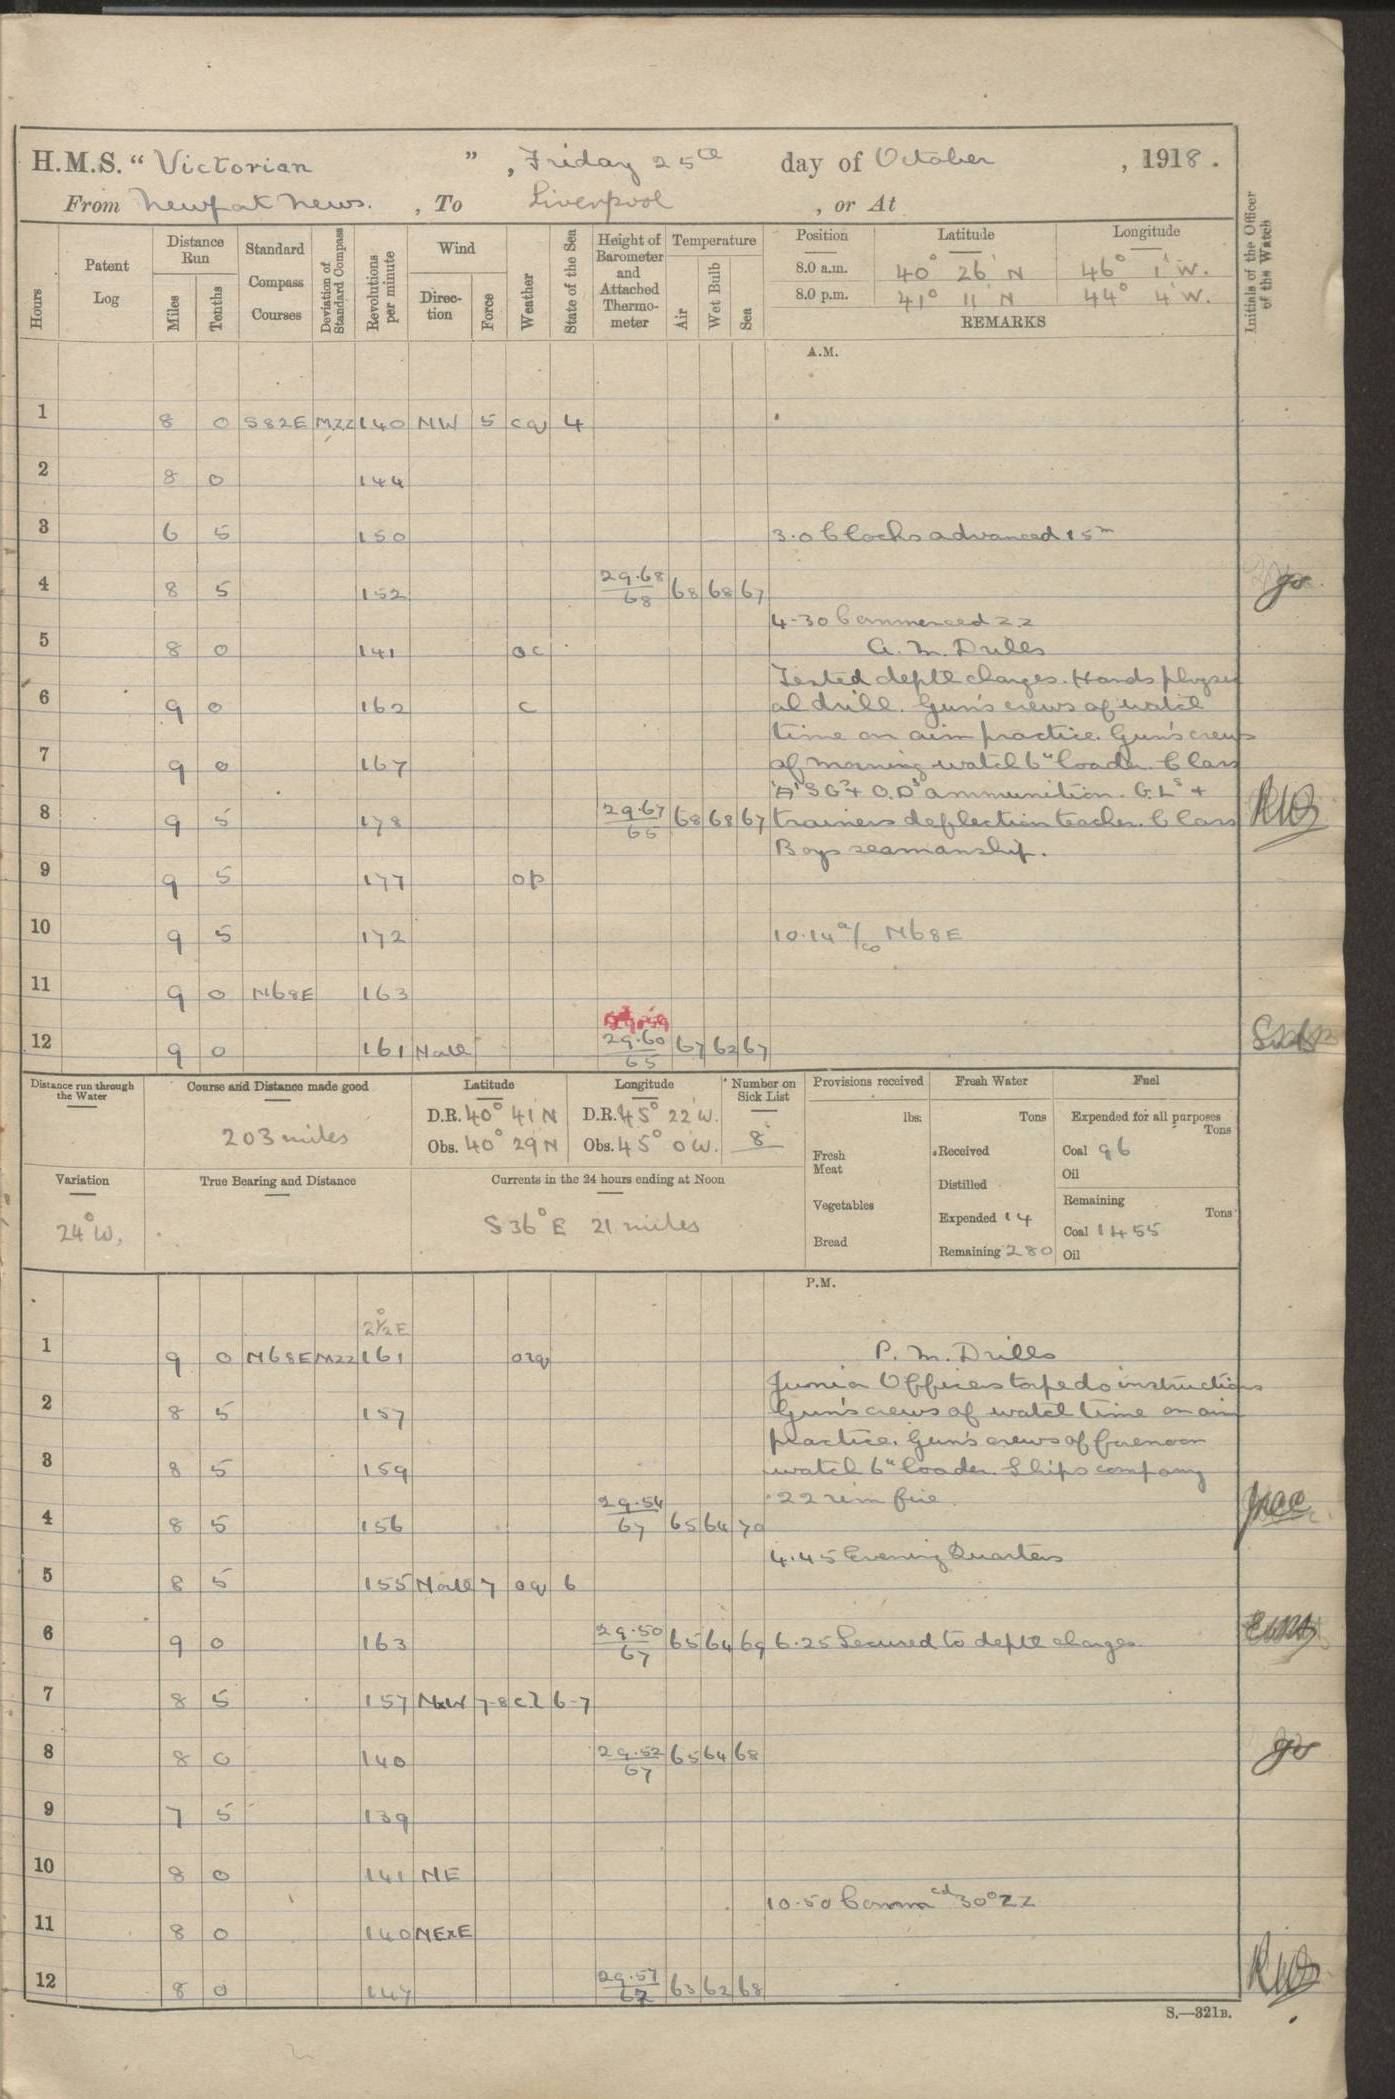 H.M.S. “ Victorian ” , Friday 25th day of October , 1918.
From Newport News. , To Liverpool , or At
Hours
Patent Log
Distance Run
Miles
Tenths
Standard Compass Courses
Deviation of Standard Compass
Revolutions per minute
Wind
Direc-tion
Force
Weather
State of the Sea
Height of Barometer and Attached Thermo-meter
Temperature
Air
Wet Bulb
Sea
Position Latitude Longitude
8.0 a.m. 40° 26' N 46° 1' W.
8.0 p.m. 41° 11' N 44° 4' W.
REMARKS
Initials of the Officer of the Watch
A.M.
1 8 0 S82E MZZ 140 NW 5 cq 4
2 8 0 144
3 6 5 150 3.0 Clocks advanced 15m
4 8 5 152 29.68/68 68 68 67
4-30 Commenced ZZ
5 8 0 141 oc A.M. Drills
Tested depth charges. Hands physic
6 9 0 162 c al drill. Gun's crews of watch
time on aim practice. Gun's crews
7 9 0 167 of morning watch 6" loader. Class
'A' SG & O.Ds ammunition. G.Ls +
8 9 5 178 29.67/65 68 68 67 trainers deflection teacher. Class RWB
Boys seamanship.
9 9 5 177 op
10 9 5 172 10.14 a/co N68E
11 9 0 N68E 163
12 9 0 161 North 29.60/65 67 62 67
Distance run through the Water
Course and Distance made good
203 miles
Latitude
D.R. 40° 41' N
Obs. 40° 29' N
Longitude
D.R. 45° 22' W.
Obs. 45° 0' W.
Number on Sick List
8
Provisions received
lbs.
Fresh Meat
Vegetables
Bread
Fresh Water
Tons
Received
Distilled
Expended 14
Remaining 280
Fuel
Expended for all purposes
Tons
Coal 96
Oil
Remaining
Tons
Coal 1455
Oil
Variation
24° W.
True Bearing and Distance
Currents in the 24 hours ending at Noon
S 36° E 21 miles
P.M.
2½°E
1 9 0 N68E MZZ 161 orq P.M. Drills
Junior Officers torpedo instructions
2 8 5 157 Gun's crews of watch time on aim
practice. Gun's crews of forenoon
3 8 5 159 watch 6" loader. Ships company
.22 rim fire.
4 8 5 156 29.54/67 65 64 70
4.45 Evening Quarters
5 8 5 155 North 7 oq 6
6 9 0 163 29.50/67 65 64 69 6.25 Secured to depth charges
7 8 5 157 NxW 7-8 cl 6-7
8 8 0 140 29.52/67 65 64 68
9 7 5 139
10 8 0 141 NE
10.50 Commcd 30° ZZ
11 8 0 140 NExE
12 8 0 147 29.57/67 63 62 68 RWB
S.—321B.